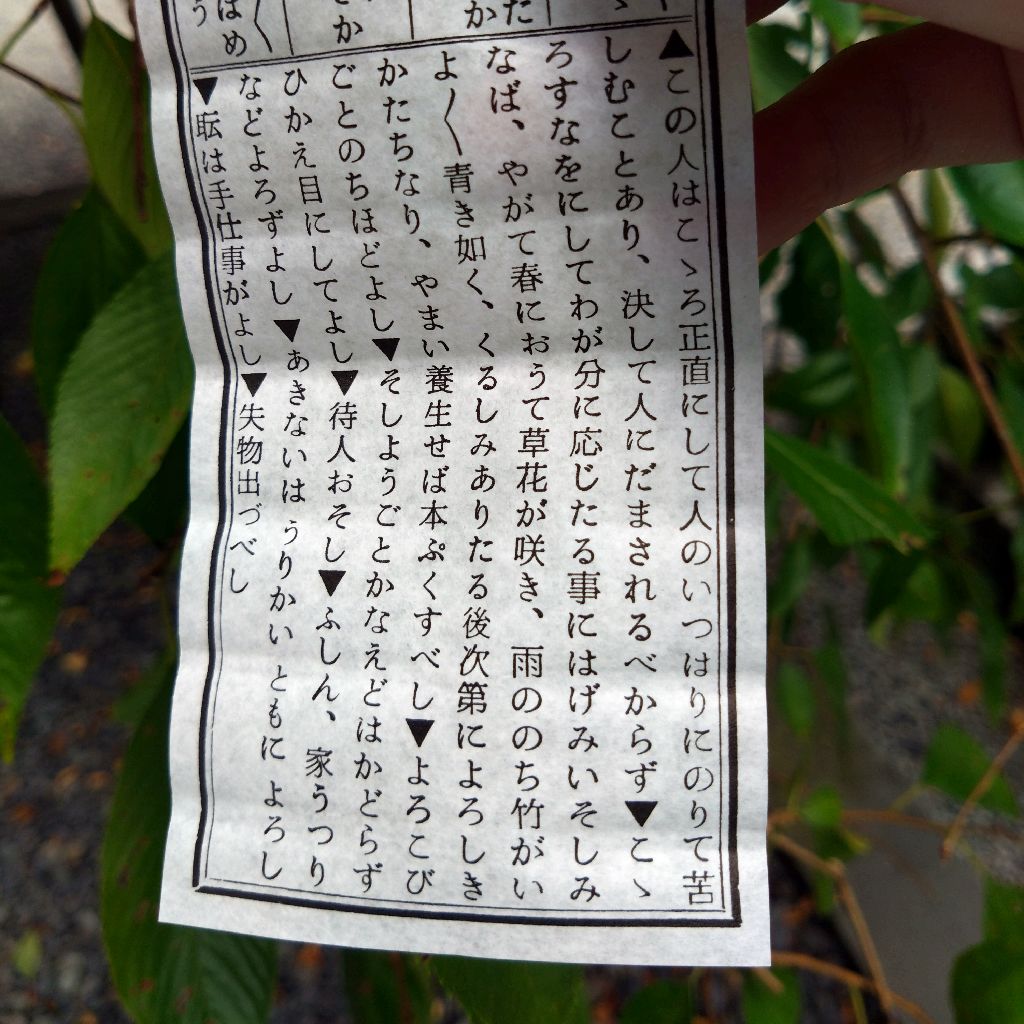 ▲この人はこゝろ正直にして人のいつはりにのりて苦
しむことあり、決して人にだまされるべからず▼こゝ
ろすなをにしてわが分に応じたる事にはげみいそしみ
なば、やがて春におうて草花が咲き、雨ののち竹がい
よ〱青き如く、くるしみありたる後次第によろしき
かたちなり、やまい養生せば本ぷくすべし▼よろこび
ごとのちほどよし▼そしようごとかなえどはかどらず
ひかえ目にしてよし▼待人おそし▼ふしん、家うつり
などよろずよし▼あきないは うりかい ともに よろし
▼転は手仕事がよし▼失物出づべし